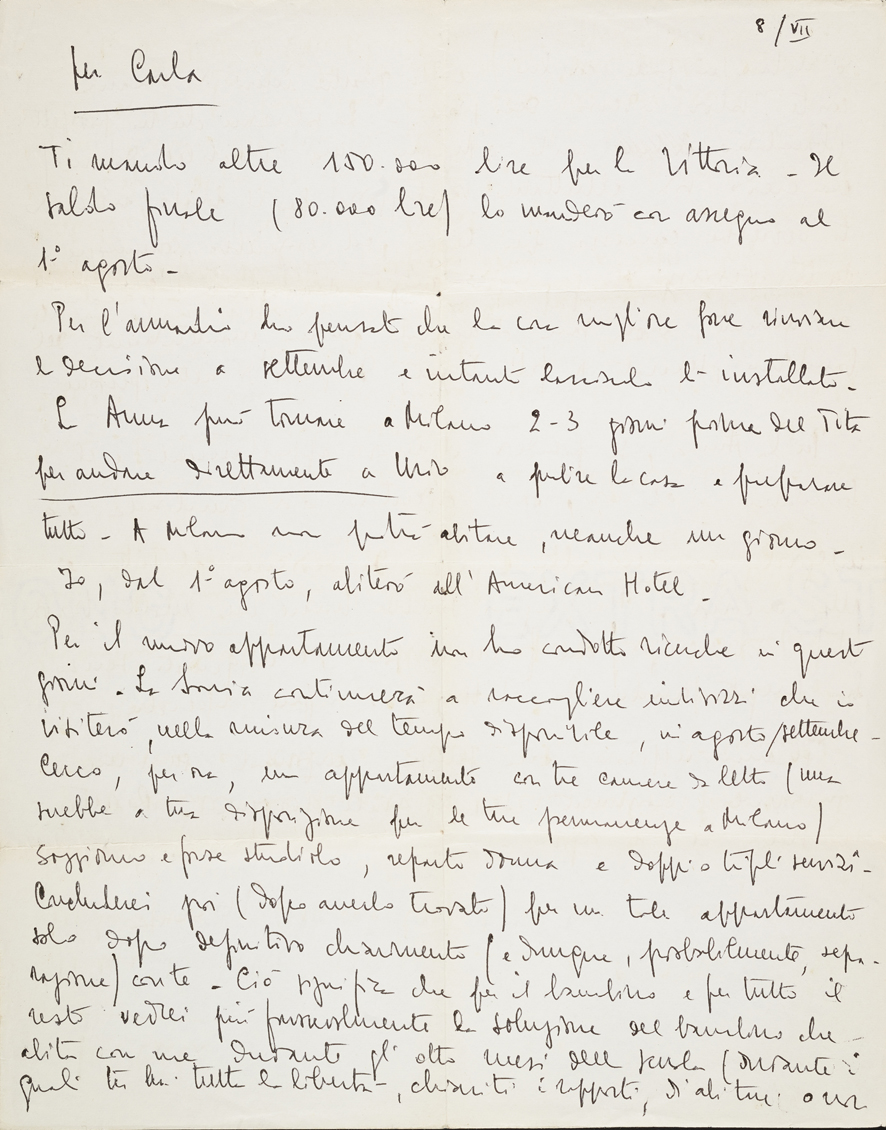 8/VII
per Carla
Ti mando altre 150.000 lire per la Vittoria - Il
saldo finale (80.000 lire) lo manderò con assegno al
1° agosto -
Per l'armadio ho pensato che la cosa migliore fosse rinviare
la decisione a settembre e intanto lasciarlo lì installato -
La Anna può tornare a Milano 2-3 giorni prima del Tita
per andare direttamente a a pulire la casa e preparare
tutto - A Milano non potrà abitare, neanche un giorno -
Io, dal 1° agosto, abiterò all'American Hotel -
Per il nuovo appartamento non ho condotto ricerche in questi
giorni. La Sonia continuerà a raccogliere indirizzi che io
visiterò, nella misura del tempo disponibile, in agosto/settembre -
Cerco, per ora, un appartamento con tre camere da letto (una
sarebbe a tua disposizione per le tue permanenze a Milano)
soggiorno e forse studiolo, reparto donna e doppi o tripli servizi -
Concluderei poi (dopo averlo trovato) per un tale appartamento
solo dopo definitivo chiarimento (e dunque, probabilmente, sepa-
razione) con te - Ciò significa che per il bambino e per tutto il
resto vedrei più favorevolmente la soluzione del bambino che
abita con me durante gli otto mesi della scuola (durante i
quali tu hai tutta la libertà -, chiariti i rapporti, d'abitare o no